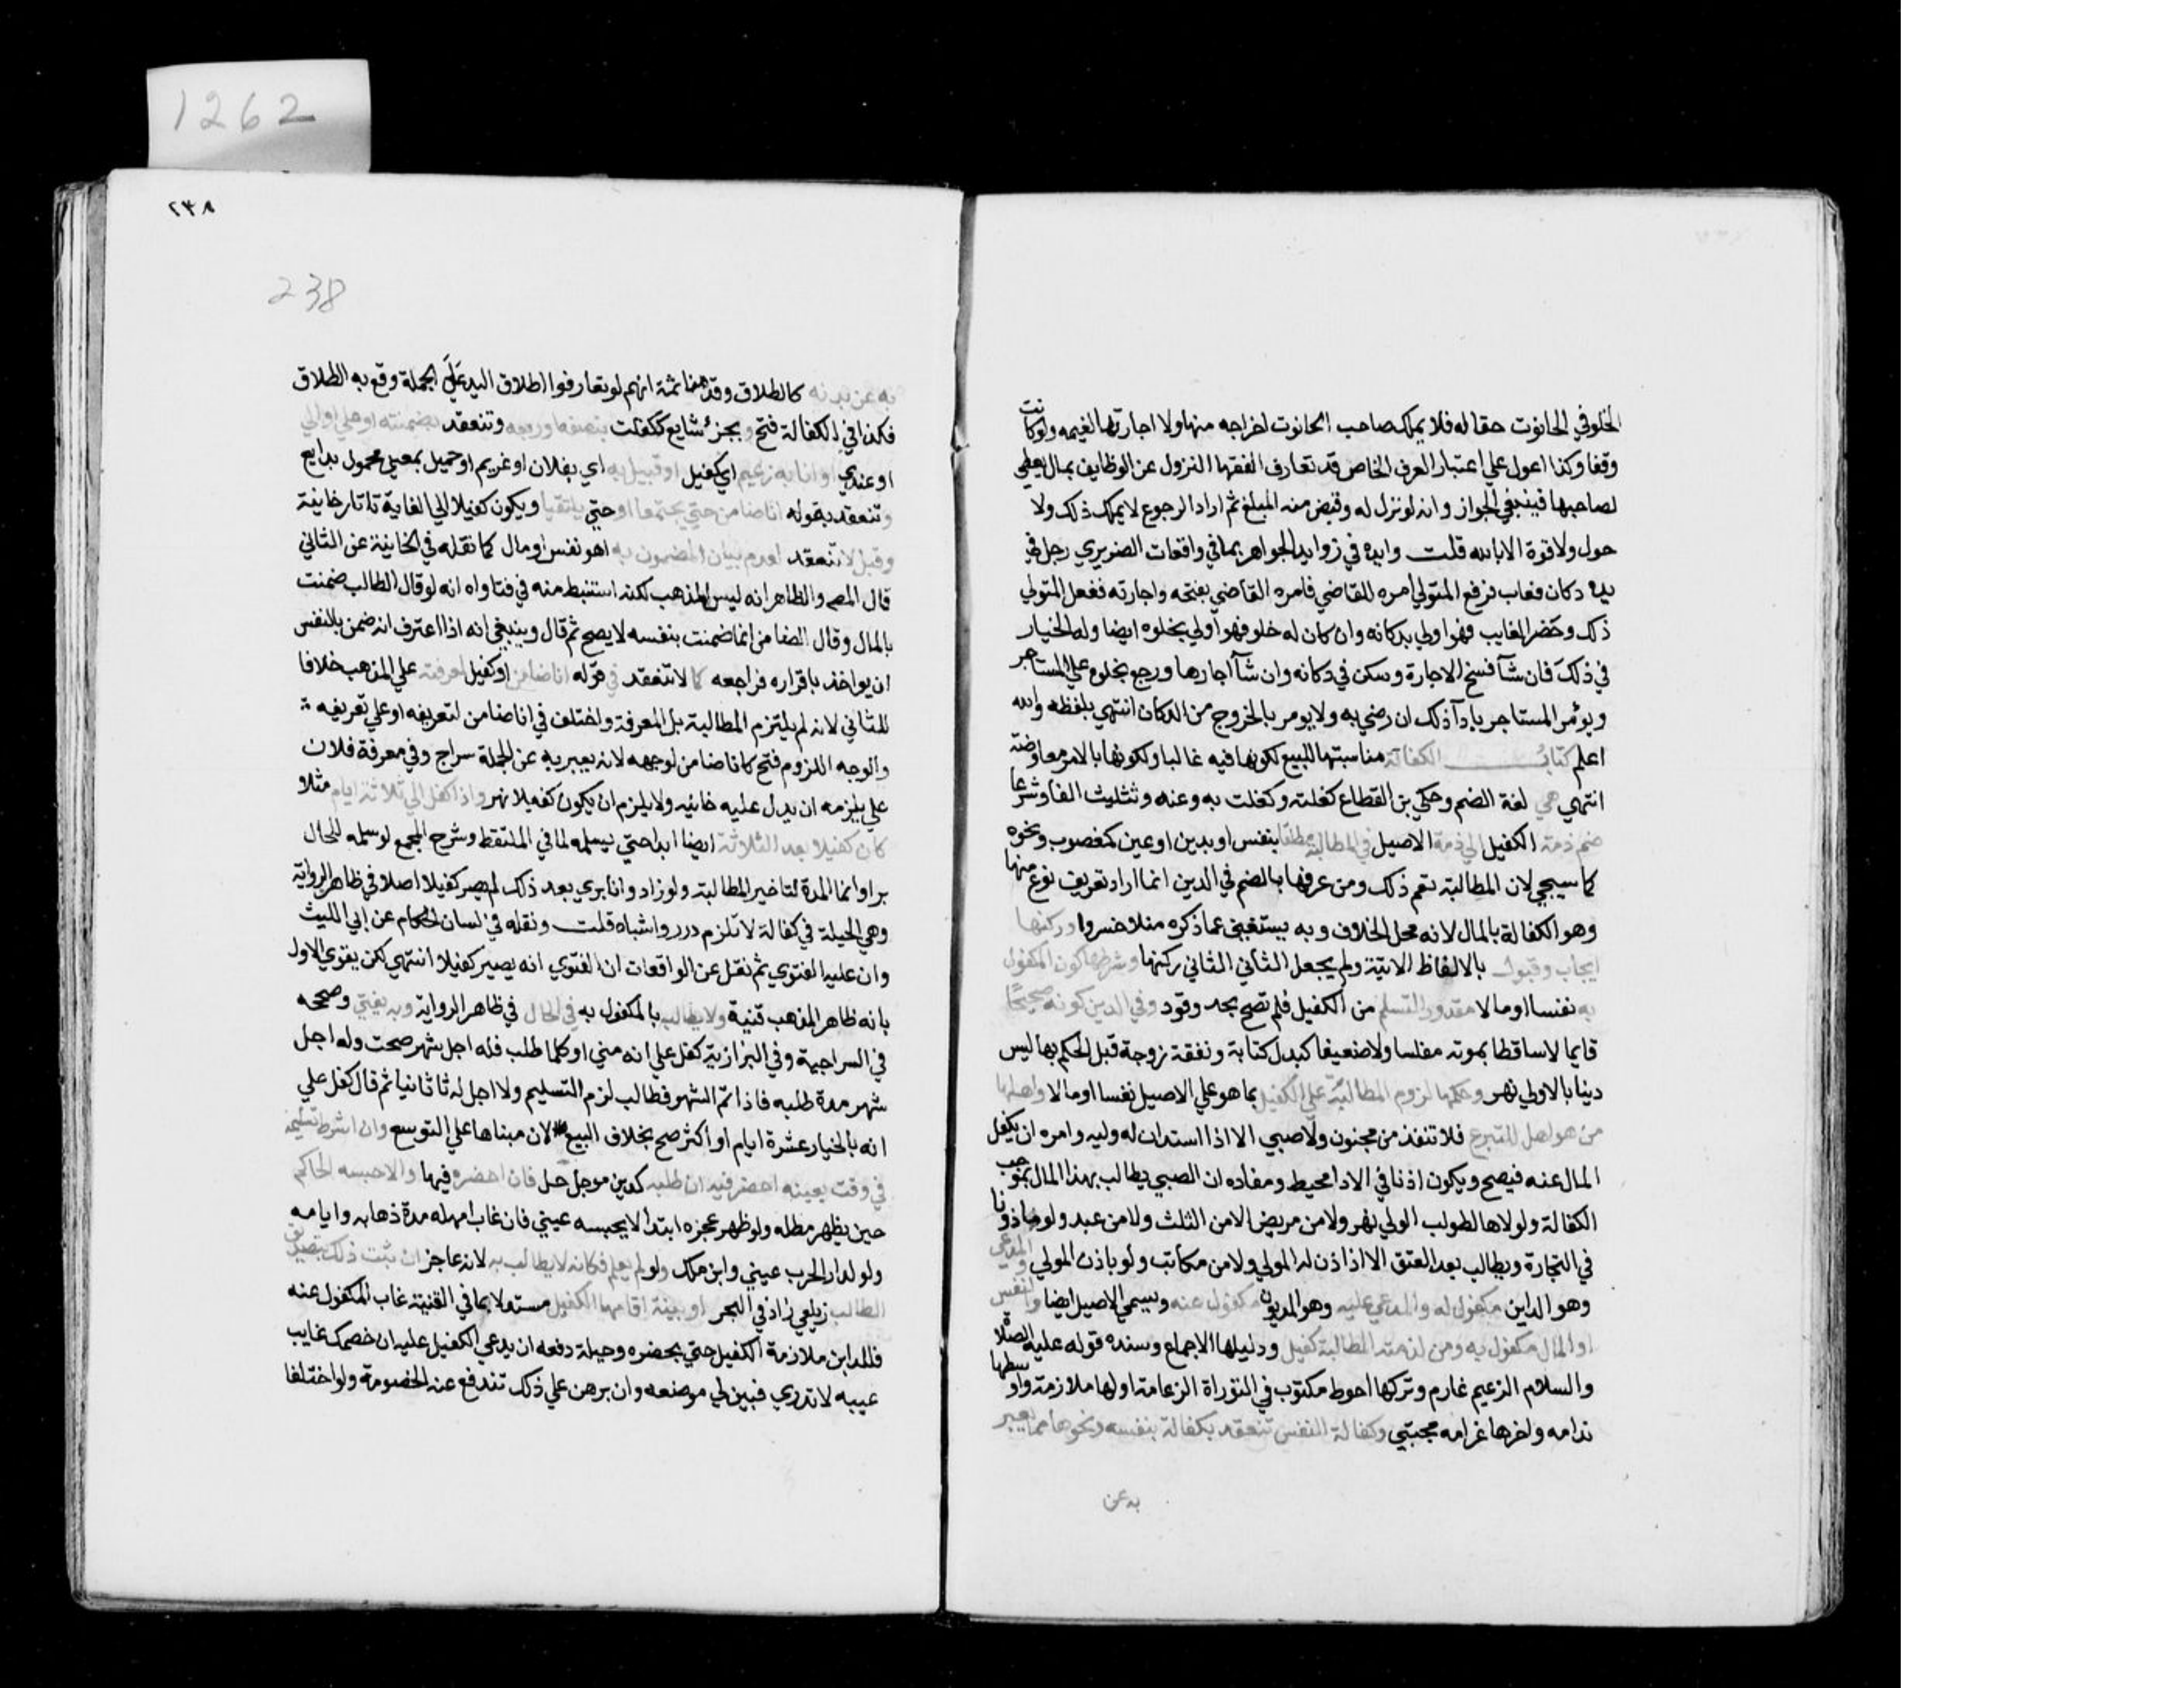 الخلو في الحانوت حقا له فلا يملك صاحب الحانوت اخراجه منها ولا اجارتها لغيره ولو كانت
وقفا وكذا اعول علي اعتبار العرف الخاص قد تعارف الفقها النزول عن الوظايف بمال يعطي
لصاحبها فينبغي الجواز وانه لو نزل له وقبض منه المبلغ ثم اراد الرجوع لا يملك ذلك ولا
حول ولا قوة الا بالله قلت وايده في زواهر الجواهر بما في واقعات الضريري رجل في
يده دكان فغاب فرفع المتولي امره للقاضي فامره القاضي بفتحه واجارته ففعل المتولي
ذلك وحضر الغايب فهو اولي بدكانه وان كان له خلو فهو اولي بخلوه ايضا وله الخيار
في ذلك فان شآ فسخ الاجارة وسكن في دكانه وان شآ اجازها ورجع بخلوه علي المستاجر
ويؤمر المستاجر بادآ ذلك ان رضي به ولا يومر بالخروج من الدكان انتهي بلفظه والله
اعلم كتاب الكفالة مناسبتها للبيع لكونها فيه غالبا ولكونها بالامر معاوضة
انتهي هي لغة الضم وحكي بن القطاع كفلته وكفلت به وعنه وتثليث الفا وشرعا
ضم ذمة الكفيل الي ذمة الاصيل في المطالبة مطلقا بنفس او بدين او عين كمغصوب ونحوه
كما سيجي لان المطالبة تعم ذلك ومن عرفها بالضم في الدين انما اراد تعريف نوع منها
وهو الكفالة بالمال لانه محل الخلاف وبه يستغني عما ذكره منلا خسروا وركنها
ايجاب وقبول بالالفاظ الاتية ولم يجعل الثاني الثاني ركنها وشرطها كون المكفول
به نفسا او مالا مقدور التسلم من الكفيل فلم تصح بحد وقود وفي الدين كونه صحيحا
قايما لا ساقطا بموته مفلسا ولا ضعيفا كبدل كتابة ونفقة زوجة قبل الحكم بها ليس
دينا بالاولي نهر وحكمها لزوم المطالبة علي الكفيل بما هو علي الاصيل نفسا او مالا واهلها
من هو اهل للتبرع فلا تنفذ من مجنون ولا صبي الا اذا استدان له وليه وامره ان يكفل
المال عنه فيصح ويكون اذنا في الادا محيط ومفاده ان الصبي يطالب بهذا المال بموجب
الكفالة ولولاها لطولب الولي نهر ولا من مريض الا من الثلث ولا من عبد ولو ماذونا
في التجارة ويطالب بعد العتق الا اذا اذن له المولي ولا من مكاتب ولو باذن المولي والمدعي
وهو الداين مكفول له والمدعي عليه وهو المديون مكفول عنه ويسمي الاصيل ايضا والنفس
او المال مكفول به ومن لزمته المطالبة كفيل ودليلها الاجماع وسنده قوله عليه الصلاة
والسلام الزعيم غارم وتركها احوط مكتوب في التوراة الزعامة اولها ملازمة واوسطها
ندامه واخرها غرامه مجتبي وكفالة النفس تنعقد بكفالة بنفسه ونحوها مما يعبر
به عن
1262
٢٣٨
238
به عن بدنه كالطلاق وقدمنا ثمة انهم لو تعارفوا اطلاق اليد علي الجملة وقع به الطلاق
فكذا في الكفالة فتح وبجزء شايع ككفلت بنصفه او ربعه وتنعقد بضمنته او علي او الي
او عندي او انا به زعيم اي كفيل او قبيل به اي بفلان او غريم او حميل بمعني محمول بدايع
وتنعقد بقوله انا ضامن حتي يجتمعا او حتي يلتقيا ويكون كفيلا الي الغاية تاتارخانية
وقيل لا تنعقد لعدم بيان المضمون به اهو نفس او مال كما نقله في الخانية عن الثاني
قال المص والظاهر انه ليس المذهب لكنه استنبط منه في فتاواه انه لو قال الطالب ضمنت
بالمال وقال الضامن انما ضمنت بنفسه لا يصح ثم قال وينبغي انه اذا اعترف انه ضمن بالنفس
ان يواخذ باقراره فراجعه كما لا تنعقد في قوله انا ضامن او كفيل لمعرفته علي المذهب خلافا
للثاني لانه لم يلتزم المطالبة بل المعرفة واختلف في انا ضامن لتعريفه او علي تعريفه
والوجه اللزوم فتح كانا ضامن لوجهه لانه يعبر به عن الجملة سراج وفي معرفة فلان
علي يلزمه ان يدل عليه خانيه ولا يلزم ان يكون كفيلا نهر واذا كفل الي ثلاثة ايام مثلا
كان كفيلا بعد الثلاثة ايضا ابدا حتي يسلمه لما في الملتقط وشرح المجمع لو سلمه للحال
برا وانما المدة لتاخير المطالبة ولو زاد وانا بري بعد ذلك لم يصر كفيلا اصلا في ظاهر الرواية
وهي الحيلة في كفالة لا تلزم درر واشباه قلت ونقله في لسان الحكام عن ابي الليث
وان عليه الفتوي ثم نقل عن الواقعات ان الفتوي انه يصير كفيلا انتهي لكن يقوي الاول
بانه ظاهر المذهب قنية ولا يطالب بالمكفول به في الحال في ظاهر الرواية وبه يفتي وصححه
في السراجية وفي البزازية كفل علي انه متي او كلما طلب فله اجل شهر صحت وله اجل
شهر مدة طلبه فاذا تم الشهر فطالب لزم التسليم ولا اجل له ثا ثانيا ثم قال كفل علي
انه بالخيار عشرة ايام او اكثر صح بخلاف البيع لان مبناها علي التوسع وان اشرط تسليمه
في وقت بعينه احضر فيه ان طلبه كدين موجل حل فان احضره فيها والا حبسه الحاكم
حين يظهر مطله ولو ظهر عجزه ابتدا لا يحبسه عيني فان غاب امهله مدة ذهابه وايابه
ولو لدار الحرب عيني وابن ملك ولو لم يعلم مكانه لا يطالب به لانه عاجز ان ثبت ذلك بتصديق
الطالب زيلعي زاد في البحر او بينة اقامها الكفيل مستدلا بما في القنية غاب المكفول عنه
فللداين ملازمة الكفيل حتي يحضره وحيلة دفعه ان يدعي الكفيل عليه ان خصمك غايب
غيبه لا تدري فبين لي موضعه وان برهن علي ذلك تندفع عنه الخصومة ولو اختلفا